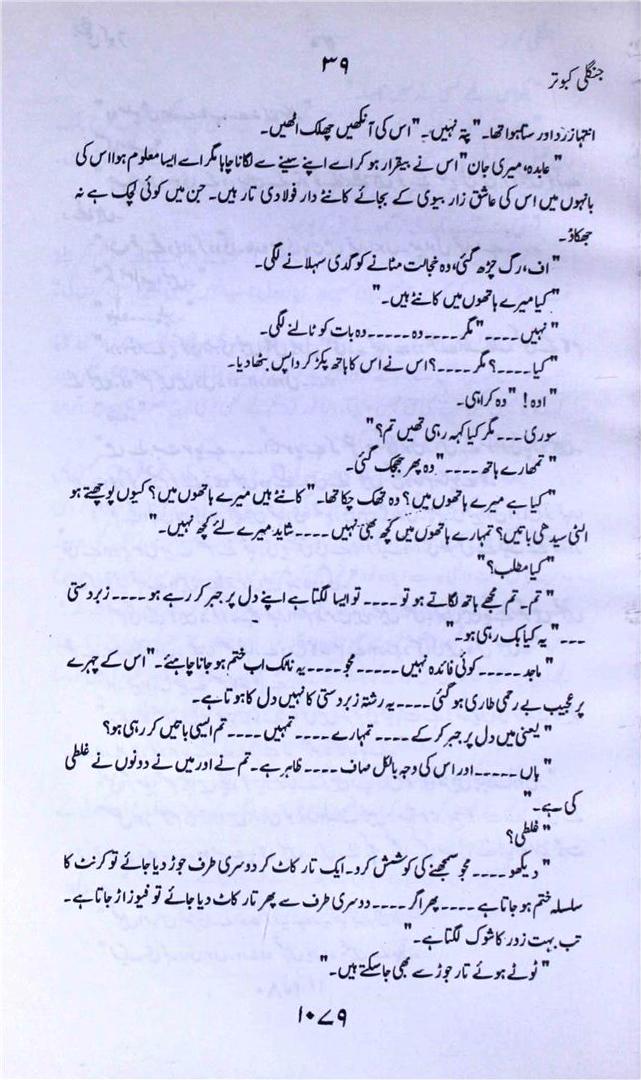 جنگلی کبوتر
۳۹
انتہا زرد اور ستا ہوا تھا۔ "پتہ نہیں۔" اس کی آنکھیں چھلک اٹھیں۔
"عابدہ، میری جان" اس نے بیقرار ہو کر اسے اپنے سینے سے لگانا چاہا مگر اسے ایسا معلوم ہوا اس کی
بانہوں میں اس کی عاشق زار بیوی کے بجائے کانٹے دار فولادی تار ہیں۔ جن میں کوئی لچک ہے نہ
جھکاؤ۔
"اف، رگ چڑھ گئی، وہ خجالت مٹانے کو گدی سہلانے لگی۔
"کیا میرے ہاتھوں میں کانٹے ہیں۔"
"نہیں ۔۔۔۔" مگر ۔۔۔۔ وہ ۔۔۔۔۔ وہ بات کو ٹالنے لگی۔
"کیا ۔۔۔۔؟ مگر ۔۔۔۔؟ اس نے اس کا ہاتھ پکڑ کر واپس بٹھا دیا۔
"اوہ! "وہ کراہی۔
سوری ۔۔۔ مگر کیا کہہ رہی تھیں تم؟"
"تمھارے ہاتھ ۔۔۔۔" وہ پھر جھجک گئی۔
"کیا ہے میرے ہاتھوں میں؟ وہ تھک چکا تھا۔ "کانٹے ہیں میرے ہاتھوں میں؟ کیوں پوچھتے ہو
الٹی سیدھی باتیں؟ تمہارے ہاتھوں میں کچھ بھی نہیں ۔۔۔۔ شاید میرے لئے کچھ نہیں۔"
"کیا مطلب؟"
"تم۔ تم مجھے ہاتھ لگاتے ہو تو ۔۔۔۔ تو ایسا لگتا ہے اپنے دل پر جبر کر رہے ہو ۔۔۔۔ زبردستی
۔۔۔ "یہ کیا بک رہی ہو۔"
"ماجد ۔۔۔۔۔ کوئی فائدہ نہیں ۔۔۔۔ مجو ۔۔۔۔ یہ ناٹک اب ختم ہو جانا چاہئے۔" اس کے چہرے
پر عجیب بے رحمی طاری ہو گئی ۔۔۔۔ یہ رشتہ زبردستی کا نہیں دل کا ہوتا ہے۔
"یعنی میں دل پر جبر کر کے ۔۔۔۔ تمہارے ۔۔۔۔ تمہیں ۔۔۔۔ تم ایسی باتیں کر رہی ہو؟
"ہاں ۔۔۔۔۔ اور اس کی وجہ بالکل صاف ۔۔۔۔ ظاہر ہے۔ تم نے اور میں نے دونوں نے غلطی
کی ہے۔"
"غلطی؟
"دیکھو ۔۔۔۔ مجو سمجھنے کی کوشش کرو۔ ایک تار کاٹ کر دوسری طرف جوڑ دیا جائے تو کرنٹ کا
سلسلہ ختم ہو جاتا ہے ۔۔۔۔ پھر اگر ۔۔۔۔ دوسری طرف سے پھر تار کاٹ دیا جائے تو فیوز اڑ جاتا ہے۔
تب بہت زور کا شوک لگتا ہے۔"
"ٹوٹے ہوئے تار جوڑے بھی جا سکتے ہیں۔"
۱۰۷۹